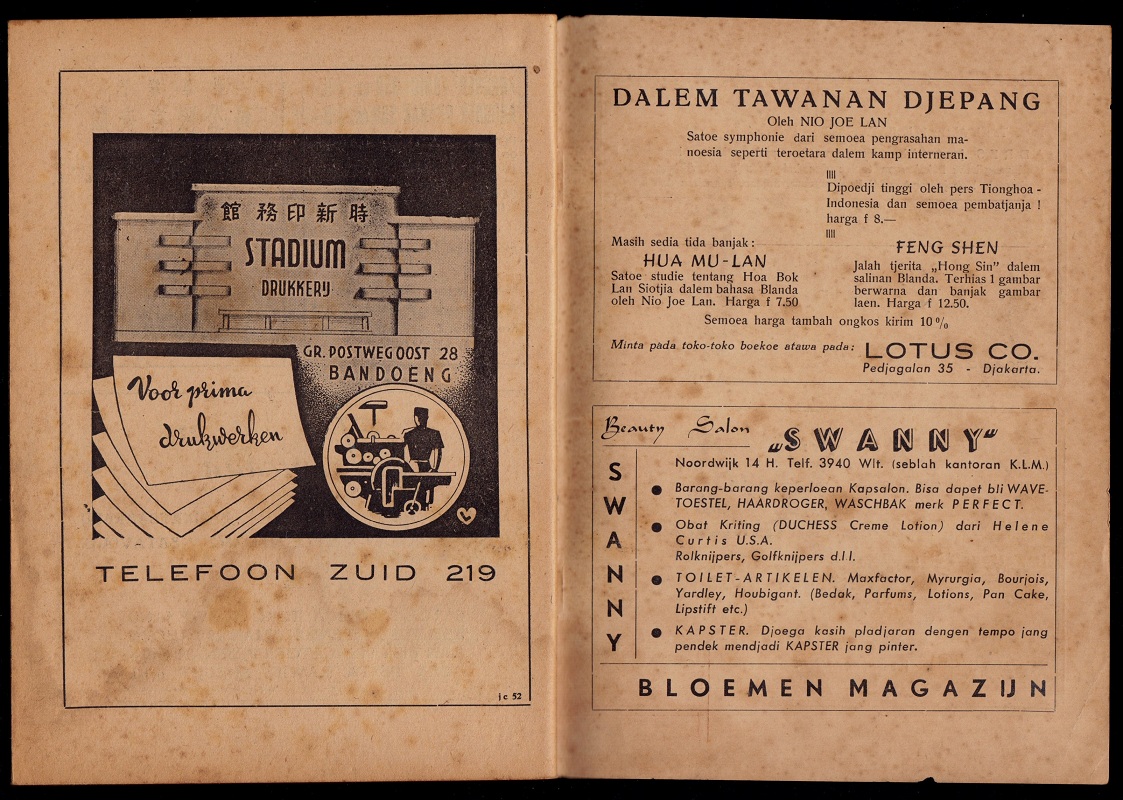 館務印新時
STADIUM
DRUKKERIJ
GR. POSTWEG OOST 28
BANDOENG
Voor prima
drukwerken
TELEFOON ZUID 219
jc 52
DALEM TAWANAN DJEPANG
Oleh NIO JOE LAN
Satoe symphonie dari semoea pengrasahan ma-
noesia seperti teroetara dalem kamp interneran.
Dipoedji tinggi oleh pers Tionghoa -
Indonesia dan semoea pembatjanja !
harga f 8.—
Masih sedia tida banjak :
HUA MU-LAN
Satoe studie tentang Hoa Bok
Lan Siotjia dalem bahasa Blanda
oleh Nio Joe Lan. Harga f 7.50
FENG SHEN
Jalah tjerita „Hong Sin” dalem
salinan Blanda. Terhias 1 gambar
berwarna dan banjak gambar
laen. Harga f 12.50.
Semoea harga tambah ongkos kirim 10 %
Minta pada toko-toko boekoe atawa pada:
LOTUS CO.
Pedjagalan 35 - Djakarta.
Beauty Salon „SWANNY”
Noordwijk 14 H. Telf. 3940 Wlt. (seblah kantoran K.L.M.)
SWANNY
● Barang-barang keperloean Kapsalon. Bisa dapet bli WAVE-
TOESTEL, HAARDROGER, WASCHBAK merk PERFECT.
● Obat Kriting (DUCHESS Creme Lotion) dari Helene
Curtis U.S.A.
Rolknijpers, Golfknijpers d.l l.
● TOILET-ARTIKELEN. Maxfactor, Myrurgia, Bourjois,
Yardley, Houbigant. (Bedak, Parfums, Lotions, Pan Cake,
Lipstift etc.)
● KAPSTER. Djoega kasih pladjaran dengen tempo jang
pendek mendjadi KAPSTER jang pinter.
BLOEMEN MAGAZIJN